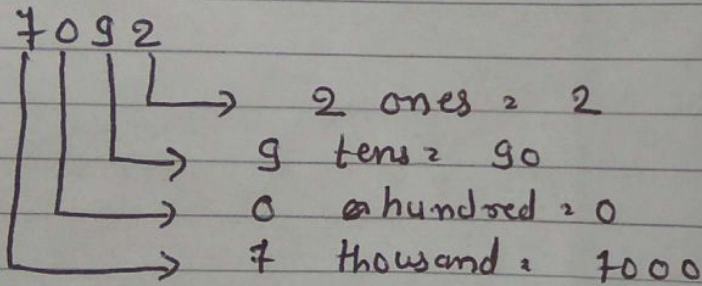 7092
2 ones = 2
9 tens = 90
0 hundred = 0
7 thousand = 7000